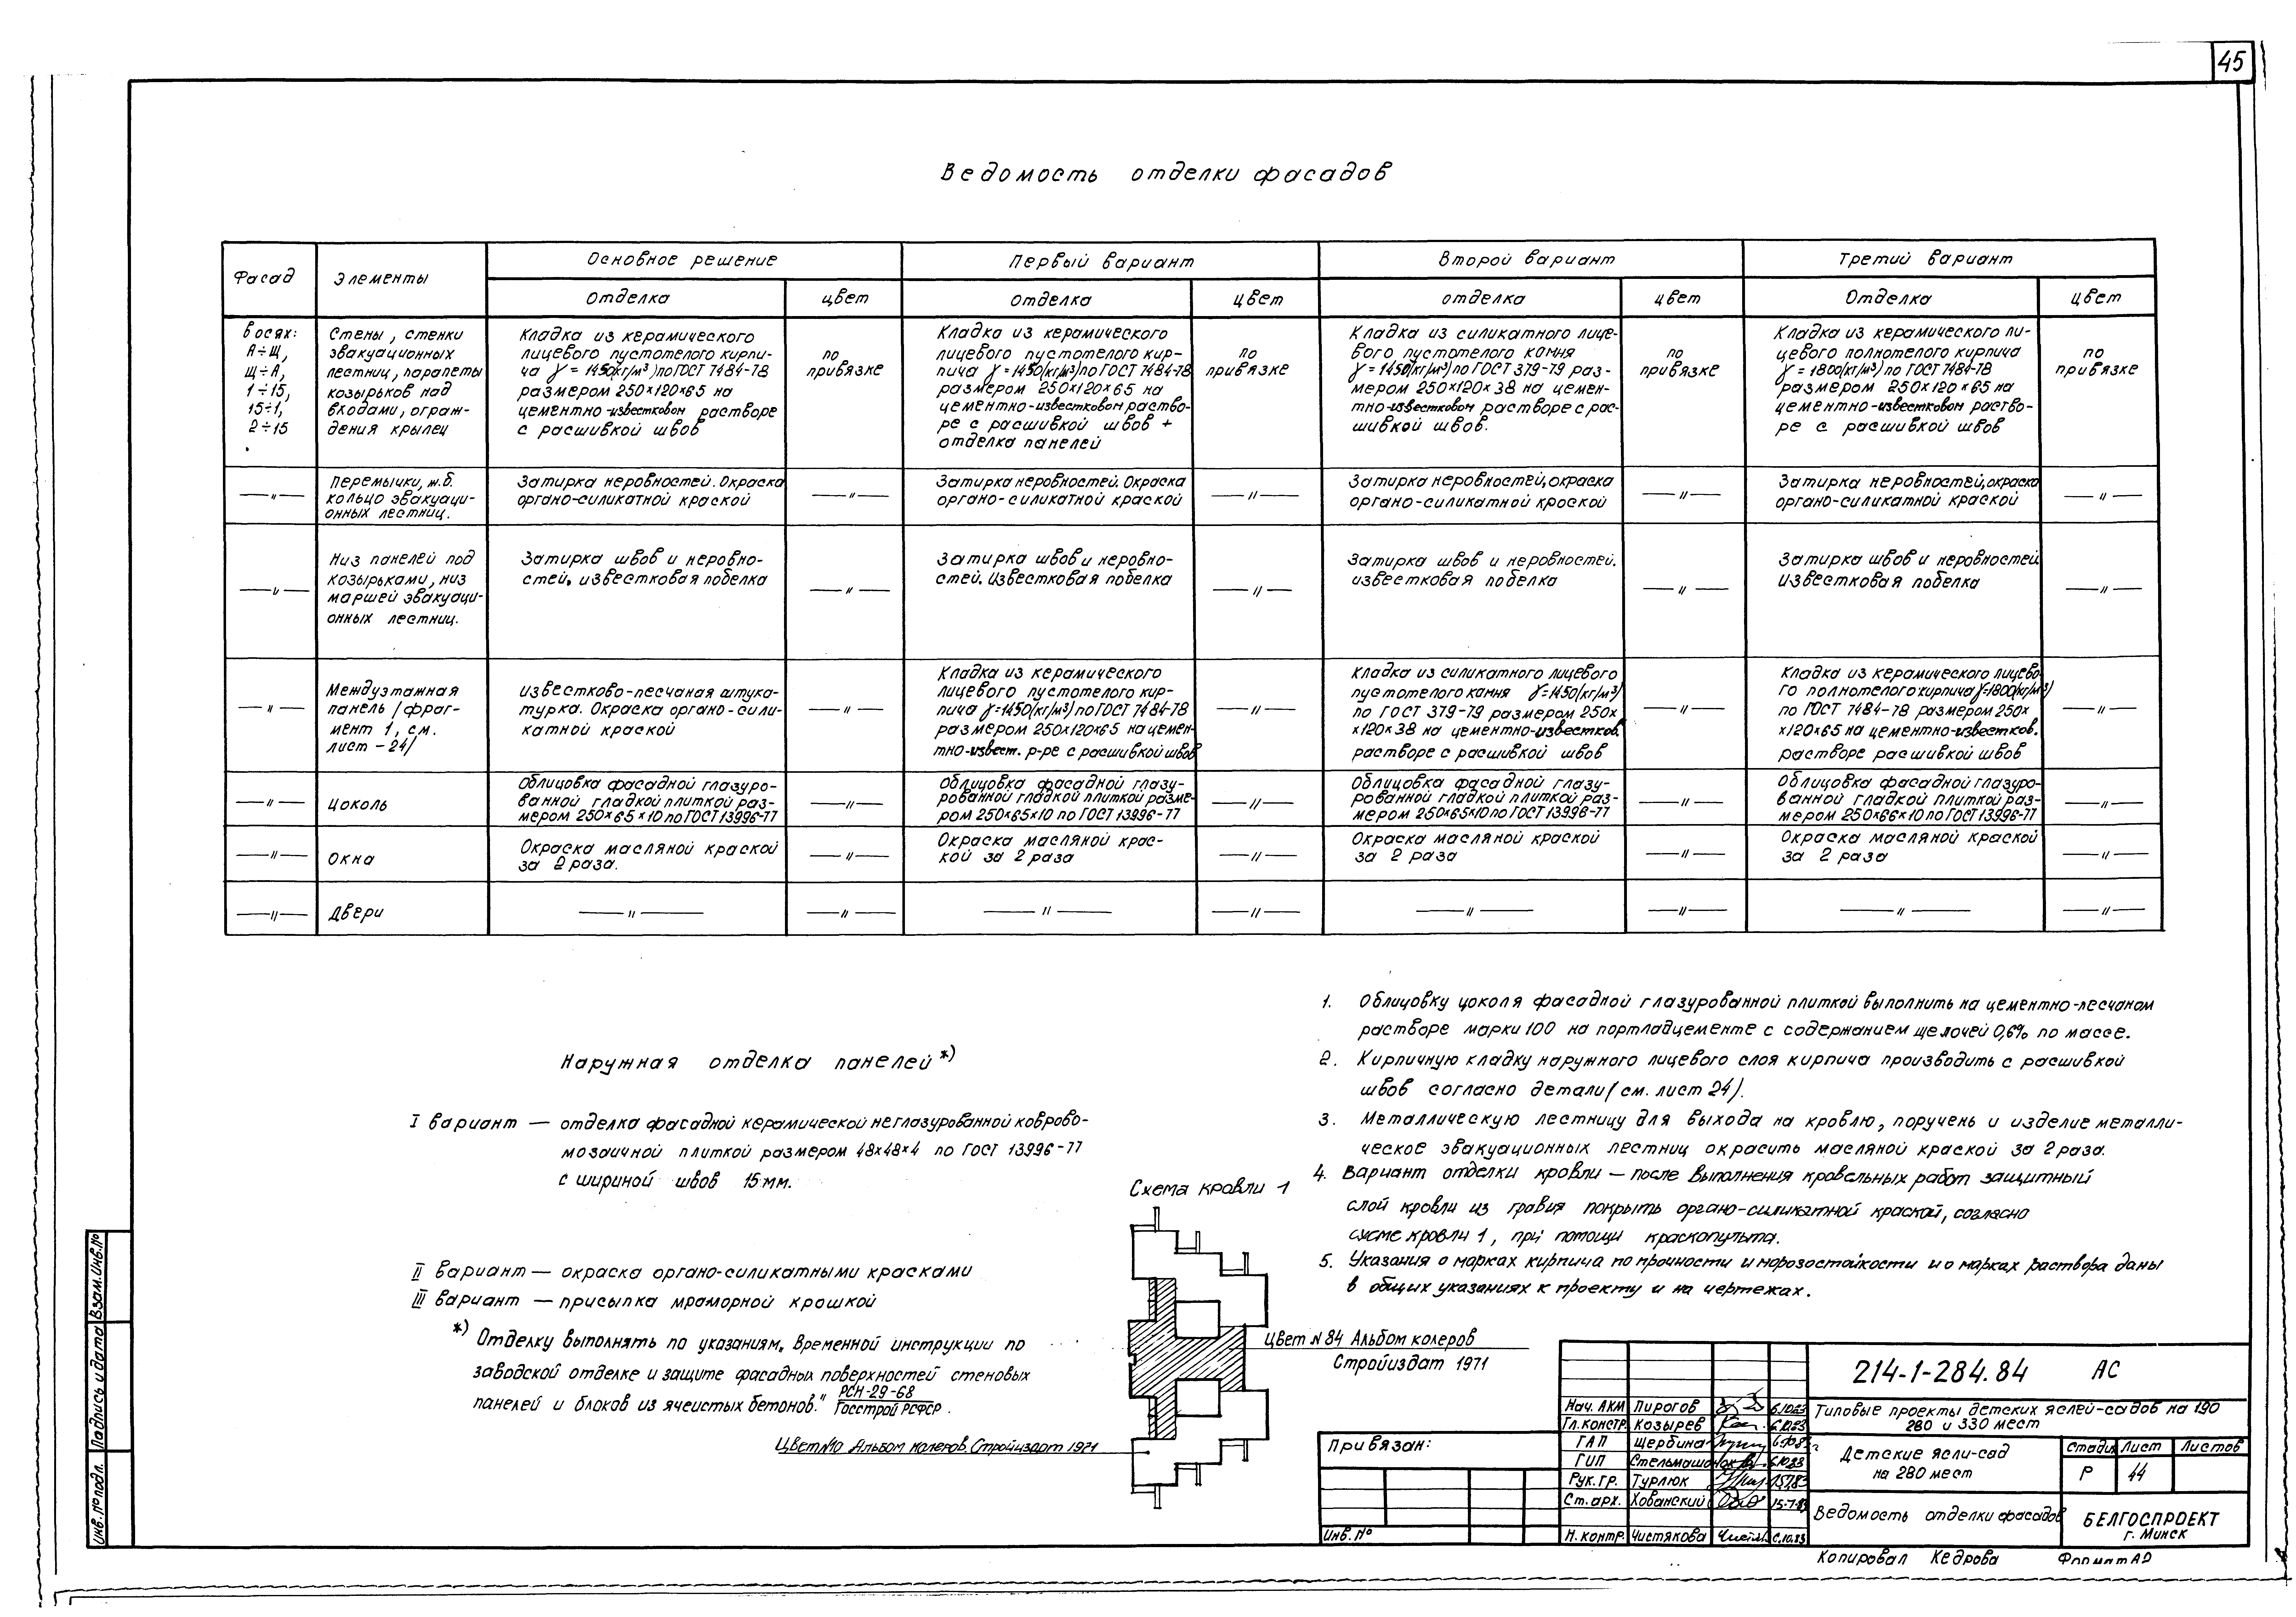 45
Ведомость отделки фасадов
Фасад
Элементы
Основное решение
Первый вариант
Второй вариант
Третий вариант
Отделка
цвет
отделка
цвет
отделка
цвет
Отделка
цвет
в осях:
А÷Щ,
Щ÷А,
1÷15,
15÷1,
2÷15
Стены, стенки
эвакуационных
лестниц, парапеты
козырьков над
входами, ограж-
дения крылец
Кладка из керамического
лицевого пустотелого кирпи-
ча γ = 1450(кг/м³) по ГОСТ 7484-78
размером 250×120×65 на
цементно-известковом растворе
с расшивкой швов
по
привязке
Кладка из керамического
лицевого пустотелого кир-
пича γ=1450(кг/м³) по ГОСТ 7484-78
размером 250×120×65 на
цементно-известковом раство-
ре с расшивкой швов +
отделка панелей
по
привязке
Кладка из силикатного лице-
вого пустотелого камня
γ=1450(кг/м³) по ГОСТ 379-79 раз-
мером 250×120×38 на цемен-
тно-известковом растворе с рас-
шивкой швов.
по
привязке
Кладка из керамического ли-
цевого полнотелого кирпича
γ = 1800(кг/м³) по ГОСТ 7484-78
размером 250×120×65 на
цементно-известковом раство-
ре с расшивкой швов
по
привязке
—"—
Перемычки, ж.б.
кольцо эвакуаци-
онных лестниц.
Затирка неровностей. Окраска
органо-силикатной краской
—"—
Затирка неровностей. Окраска
органо-силикатной краской
—"—
Затирка неровностей, окраска
органо-силикатной краской
—"—
Затирка неровностей, окраска
органо-силикатной краской
—"—
—"—
Низ панелей под
козырьками, низ
маршей эвакуаци-
онных лестниц.
Затирка швов и неровно-
стей, известковая побелка
—"—
Затирка швов и неровно-
стей. Известковая побелка
—"—
Затирка швов и неровностей.
известковая побелка
—"—
Затирка швов и неровностей.
известковая побелка
—"—
—"—
Междуэтажная
панель /фраг-
мент 1, см.
лист-24/
известково-песчаная штука-
турка. Окраска органо-сили-
катной краской
—"—
Кладка из керамического
лицевого пустотелого кир-
пича γ=1450(кг/м³) по ГОСТ 7484-78
размером 250×120×65 на цемен-
тно-извест. р-ре с расшивкой швов
—"—
Кладка из силикатного лицевого
пустотелого камня γ=1450(кг/м³)
по ГОСТ 379-79 размером 250×
×120×38 на цементно-известков.
растворе с расшивкой швов
—"—
Кладка из керамического лицево-
го полнотелого кирпича γ=1800(кг/м³)
по ГОСТ 7484-78 размером 250×
×120×65 на цементно-известков.
растворе расшивкой швов
—"—
—"—
Цоколь
Облицовка фасадной глазуро-
ванной гладкой плиткой раз-
мером 250×65×10 по ГОСТ 13996-77
—"—
Облицовка фасадной глазу-
рованной гладкой плиткой разме-
ром 250×65×10 по ГОСТ 13996-77
—"—
Облицовка фасадной глазу-
рованной гладкой плиткой раз-
мером 250×65×10 по ГОСТ 13996-77
—"—
Облицовка фасадной глазуро-
ванной гладкой плиткой раз-
мером 250×66×10 по ГОСТ 13996-77
—"—
—"—
Окна
Окраска масляной краской
за 2 раза.
—"—
Окраска масляной крас-
кой за 2 раза
—"—
Окраска масляной краской
за 2 раза
—"—
Окраска масляной краской
за 2 раза
—"—
—"—
Двери
—"—
—"—
—"—
—"—
—"—
—"—
—"—
—"—
Наружная отделка панелей *)
I вариант — отделка фасадной керамической неглазурованной коврово-
мозаичной плиткой размером 48×48×4 по ГОСТ 13996-77
с шириной швов 15 мм.
II вариант — окраска органо-силикатными красками
III вариант — присыпка мраморной крошкой
*) Отделку выполнять по указаниям „Временной инструкции по
заводской отделке и защите фасадных поверхностей стеновых
панелей и блоков из ячеистых бетонов." РСН-29-68
Госстрой РСФСР.
Схема кровли 1
Цвет N 84 Альбом колеров
Стройиздат 1971
Цвет №10 Альбом колеров. Стройиздат 1971
1. Облицовку цоколя фасадной глазурованной плиткой выполнить на цементно-песчаном
растворе марки 100 на портландцементе с содержанием щелочей 0,6% по массе.
2. Кирпичную кладку наружного лицевого слоя кирпича производить с расшивкой
швов согласно детали (см. лист 24).
3. Металлическую лестницу для выхода на кровлю, поручень и изделие металли-
ческое эвакуационных лестниц окрасить масляной краской за 2 раза.
4. Вариант отделки кровли — после выполнения кровельных работ защитный
слой кровли из гравия покрыть органо-силикатной краской, согласно
схеме кровли 1, при помощи краскопульта.
5. Указания о марках кирпича по прочности и морозостойкости и о марках раствора даны
в общих указаниях к проекту и на чертежах.
Привязан:
Инв. №
Нач. АКМ Пирогов 6.10.83
Гл. констр. Козырев 6.10.83
ГАП Щербина
ГИП Стельмашонок 6.10.83
Рук. гр. Турлюк 15.7.83
Ст. арх. Хованский 15-7-83
Н. контр. Чистякова 6.10.83
214-1-284.84 АС
Типовые проекты детских яслей-садов на 190
280 и 330 мест
Детские ясли-сад
на 280 мест
Стадия Лист Листов
Р 44
Ведомость отделки фасадов
БЕЛГОСПРОЕКТ
г. Минск
Копировал Кедрова Формат А2
Инв. № подл. Подпись и дата Взам. инв. №